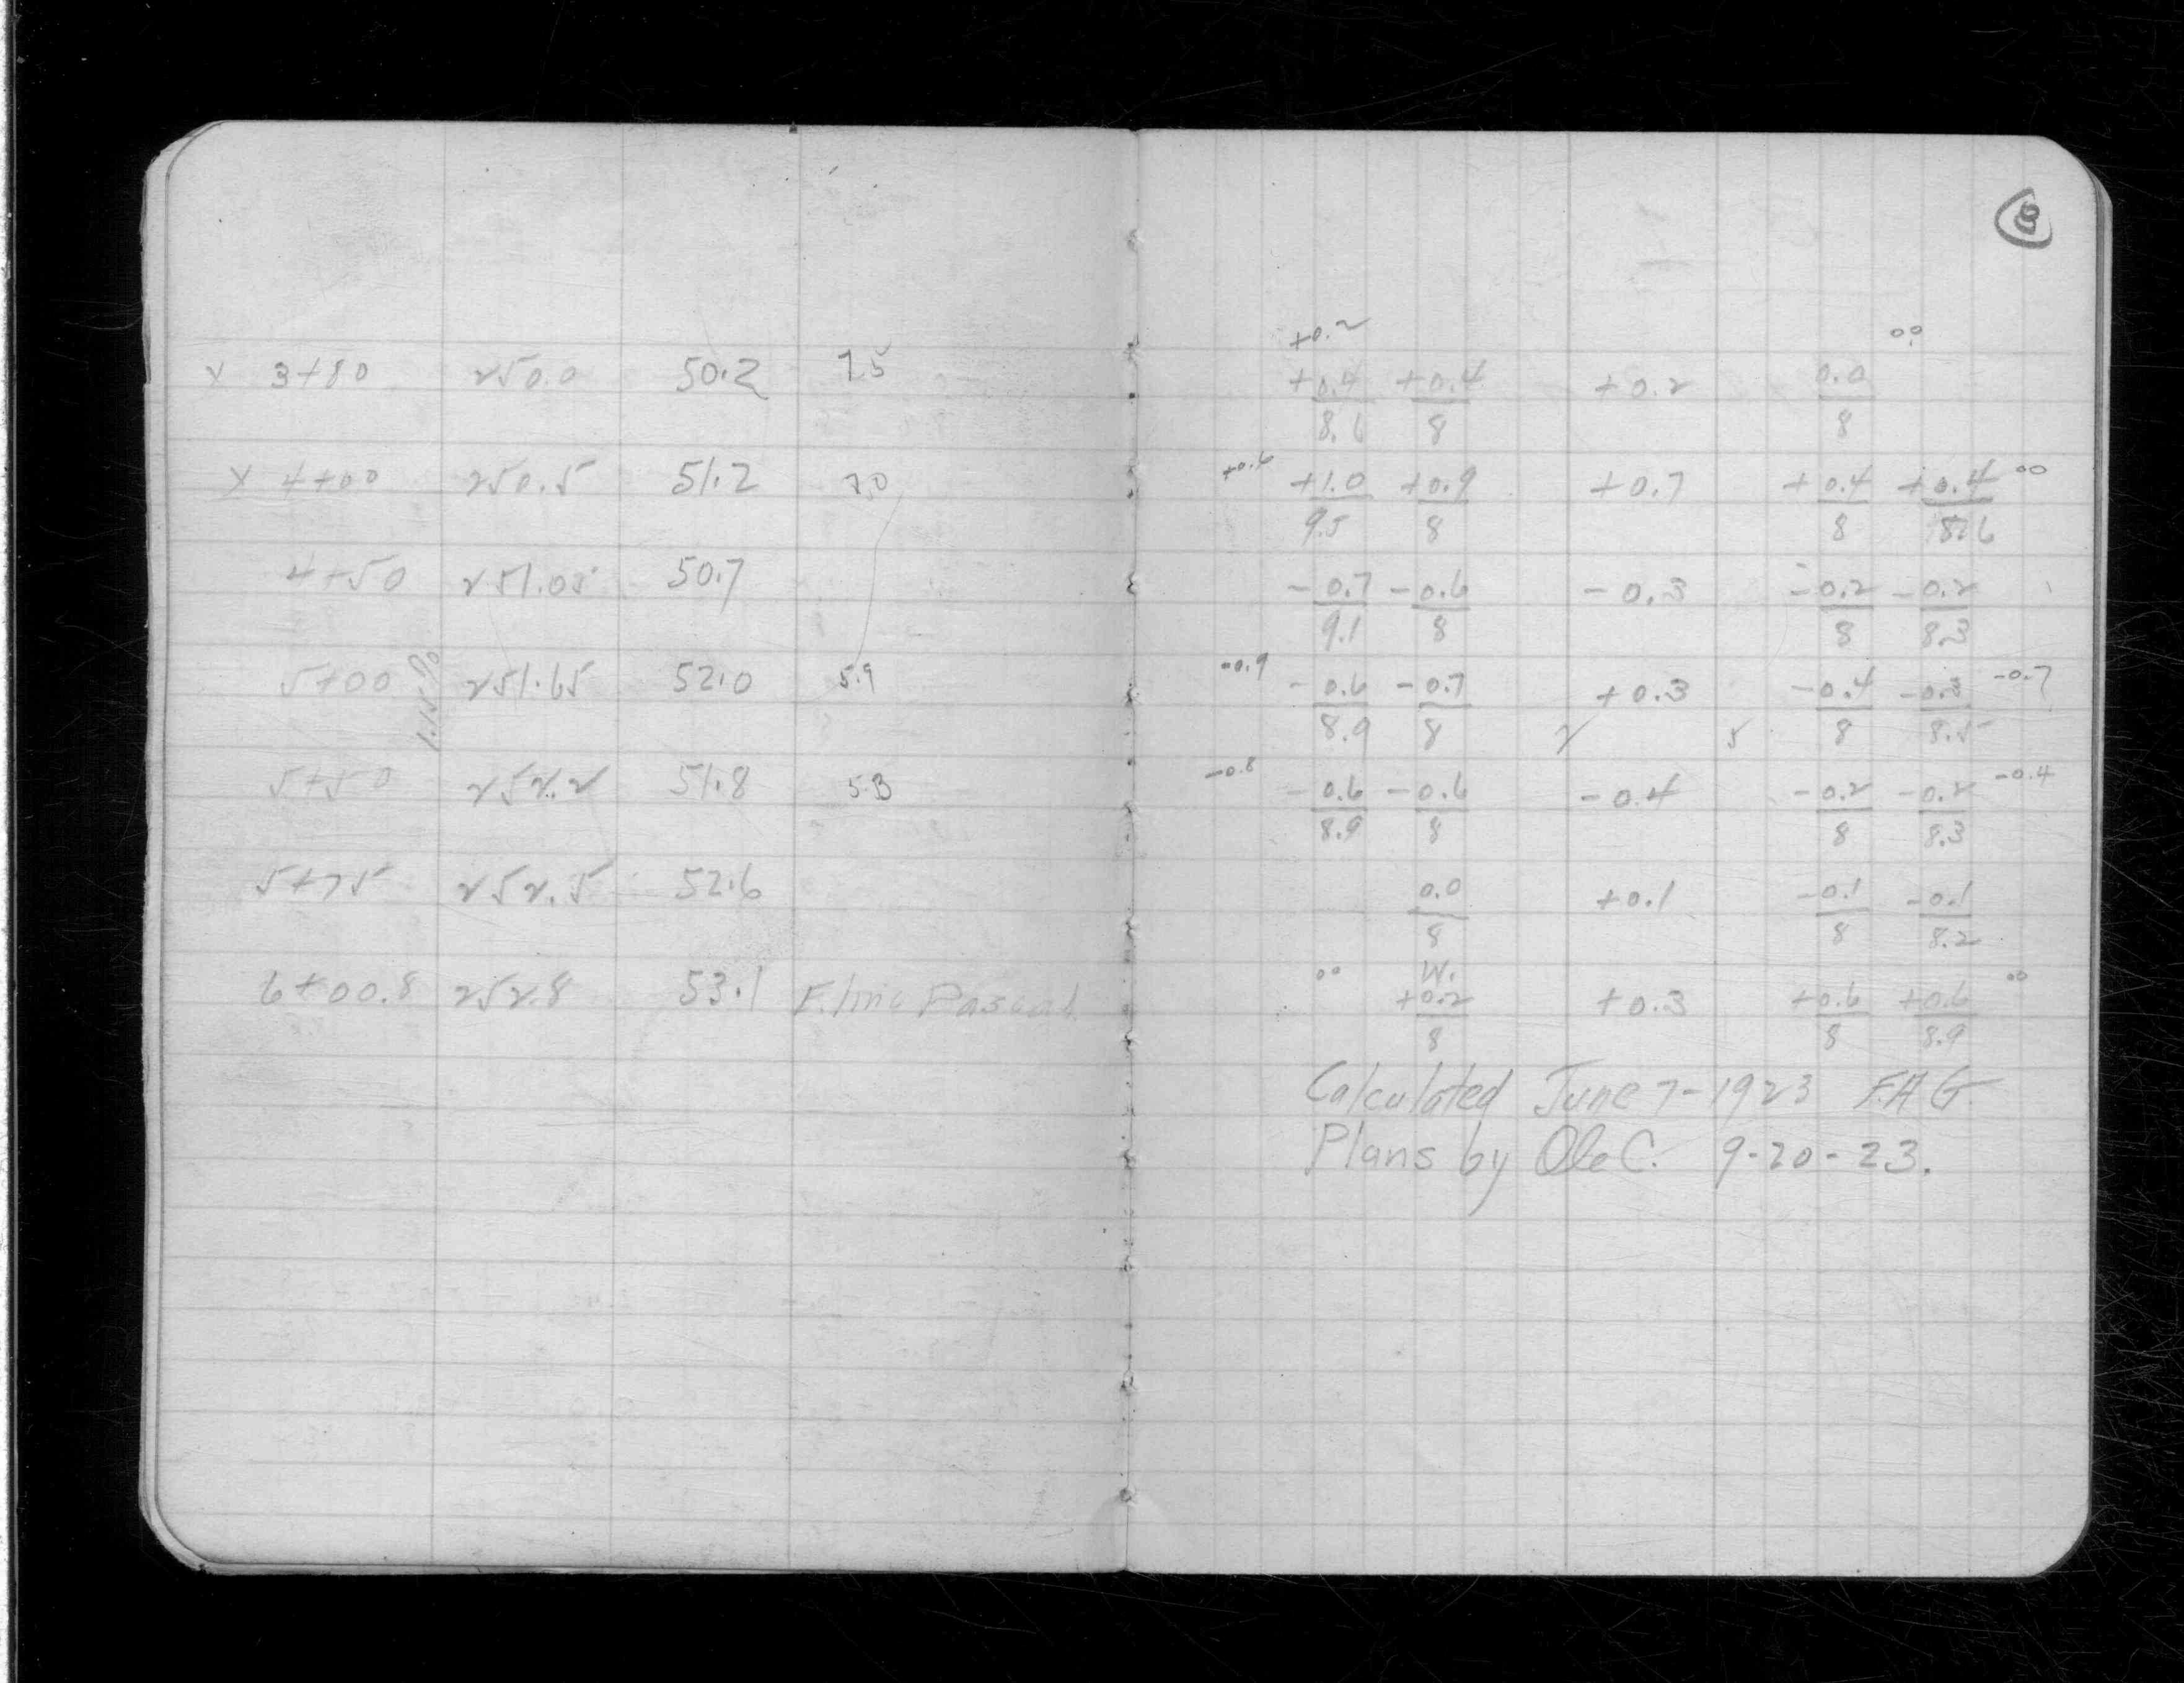 8
+0.2 0.0
x 3+80 250.0 50.2 7.5 +0.4/8.6 +0.4/8 +0.2 0.0/8
x 4+00 250.5 51.2 7.0 +0.6 +1.0/9.5 +0.9/8 +0.7 +0.4/8 +0.4/8.6 00
4+50 251.05 50.7 -0.7/9.1 -0.6/8 -0.3 -0.2/8 -0.2/8.3
5+00 1.15% 251.65 52.0 5.9 -0.9 -0.6/8.9 -0.7/8 +0.3 -0.4/8 8.5 -0.7
5+50 252.2 51.8 5.3 -0.8 -0.6/8.9 -0.6/8 -0.4 -0.2/8 -0.2/8.3 -0.4
5+75 252.5 52.6 0.0/8 +0.1 -0.1/8 -0.1/8.2
W.
6+00.8 252.8 53.1 E. line Pascal 00 +0.2/8 +0.3 +0.6/8 +0.6/8.9 00
Calculated June 7-1923 F.A.G.
Plans by Ole C. 9-20-23.